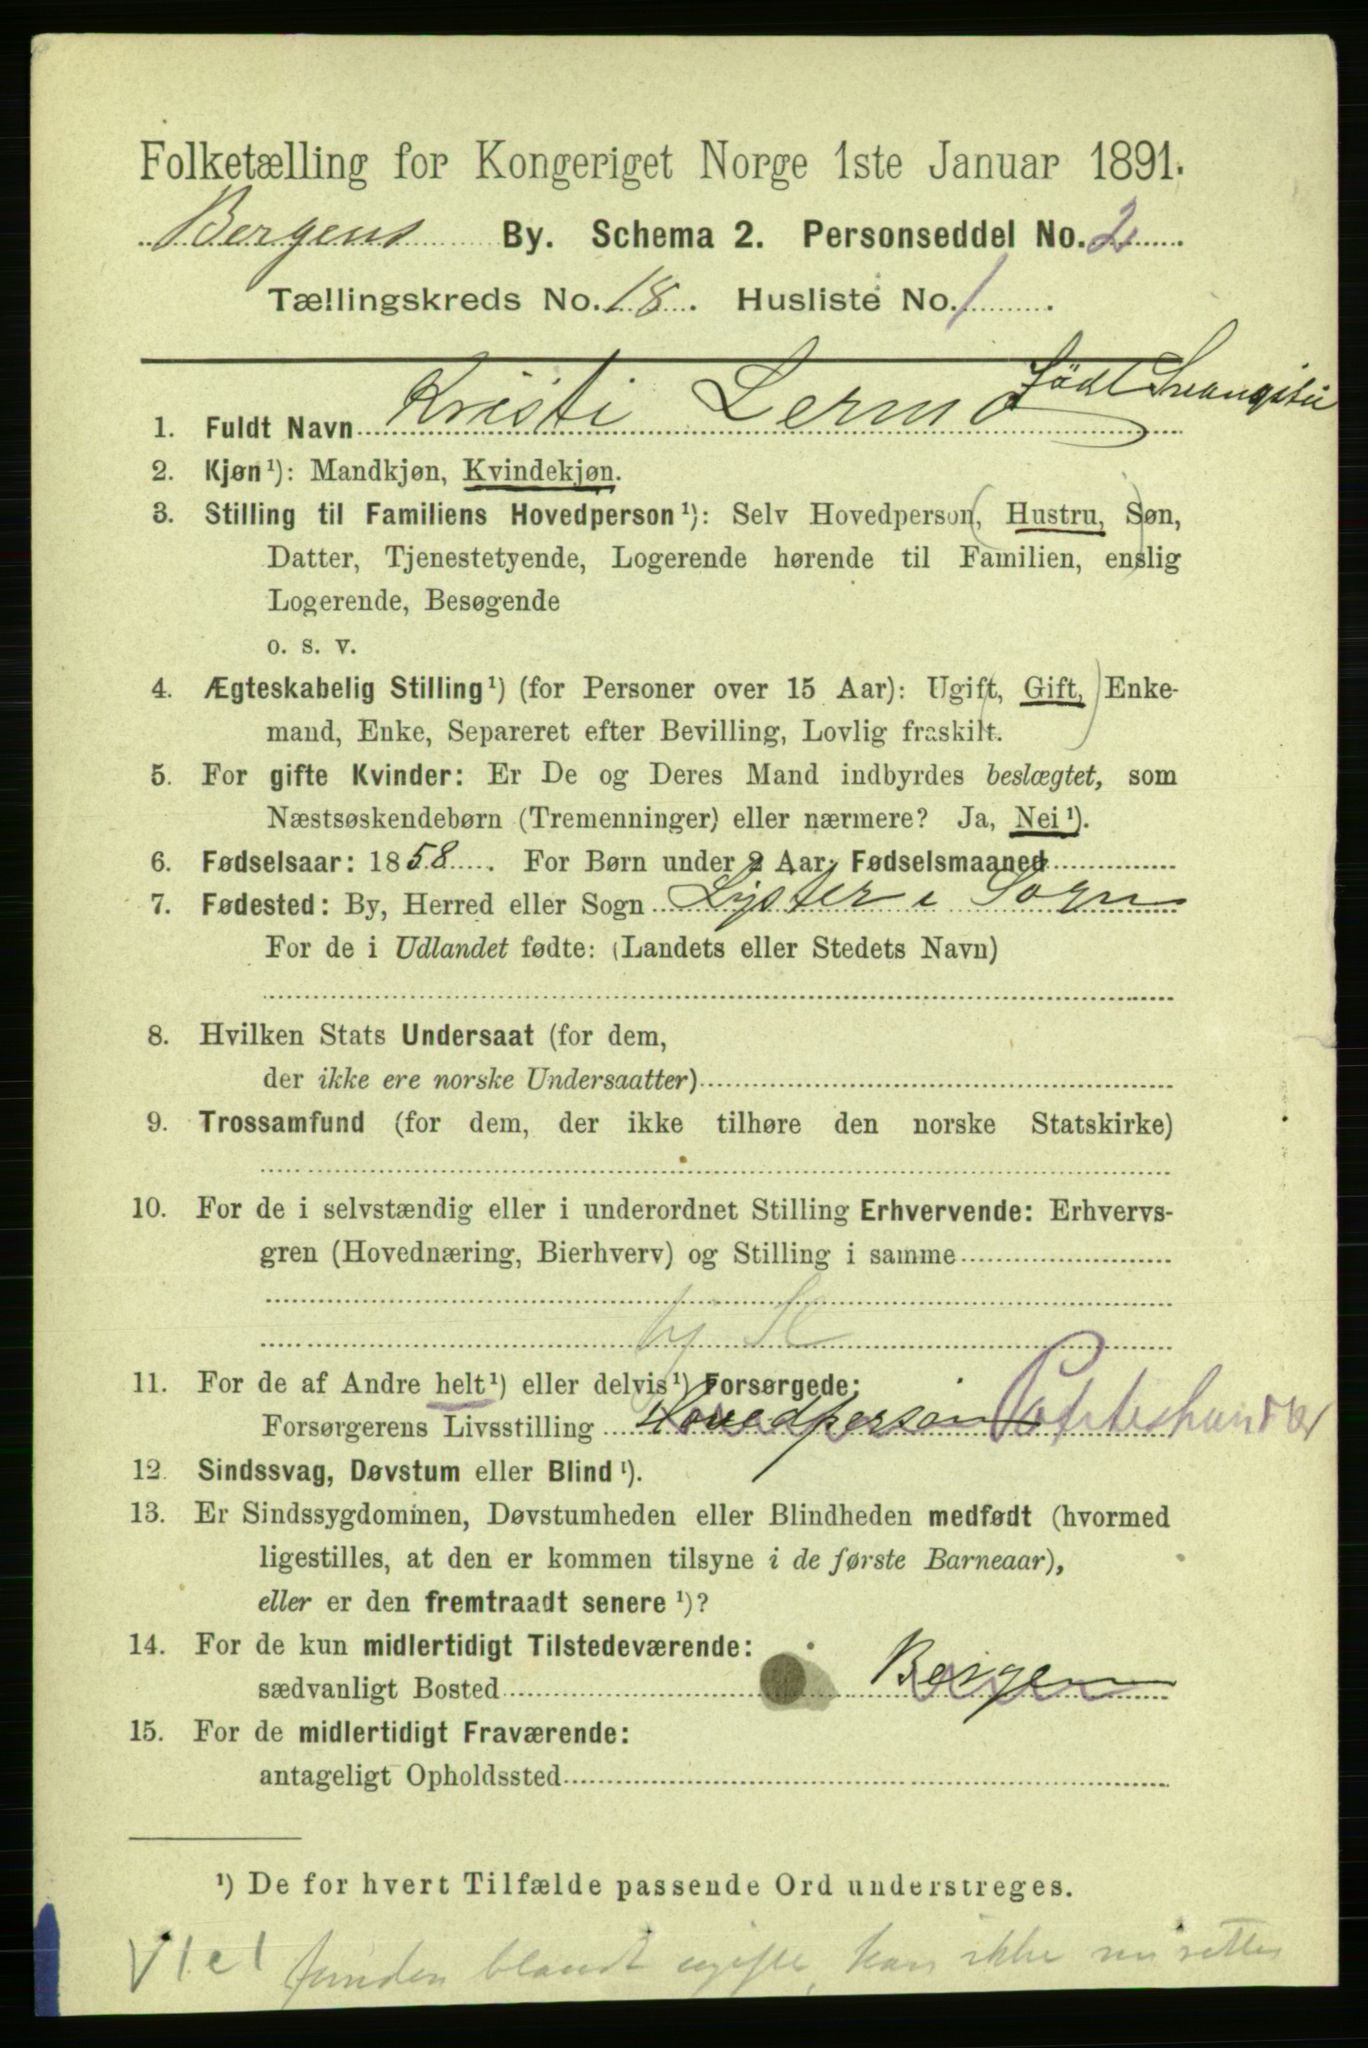 Folketælling for Kongeriget Norge 1ste Januar 1891.
Bergens By. Schema 2. Personseddel No. 2
Tællingskreds No. 18. Husliste No. 1.
1. Fuldt Navn Kristi Lerm født
2. Kjøn¹): Mandkjøn, Kvindekjøn.
3. Stilling til Familiens Hovedperson¹): Selv Hovedperson, Hustru, Søn,
Datter, Tjenestetyende, Logerende hørende til Familien, enslig
Logerende, Besøgende
o. s. v.
4. Ægteskabelig Stilling¹) (for Personer over 15 Aar): Ugift, Gift, Enke-
mand, Enke, Separeret efter Bevilling, Lovlig fraskilt.
5. For gifte Kvinder: Er De og Deres Mand indbyrdes beslægtet, som
Næstsøskendebørn (Tremenninger) eller nærmere? Ja, Nei¹).
6. Fødselsaar: 1858. For Børn under 2 Aar: Fødselsmaaned
7. Fødested: By, Herred eller Sogn Lyster i Sogn
For de i Udlandet fødte: (Landets eller Stedets Navn)
8. Hvilken Stats Undersaat (for dem,
der ikke ere norske Undersaatter)
9. Trossamfund (for dem, der ikke tilhøre den norske Statskirke)
10. For de i selvstændig eller i underordnet Stilling Erhvervende: Erhvervs-
gren (Hovednæring, Bierhverv) og Stilling i samme
11. For de af Andre helt¹) eller delvis¹) Forsørgede:
Forsørgerens Livsstilling Hovedperson
12. Sindssvag, Døvstum eller Blind¹).
13. Er Sindssygdommen, Døvstumheden eller Blindheden medfødt (hvormed
ligestilles, at den er kommen tilsyne i de første Barneaar),
eller er den fremtraadt senere¹)?
14. For de kun midlertidigt Tilstedeværende:
sædvanligt Bosted Bergen
15. For de midlertidigt Fraværende:
antageligt Opholdssted
¹) De for hvert Tilfælde passende Ord understreges.
funden blandt ugifte, kan ikke nu rettes